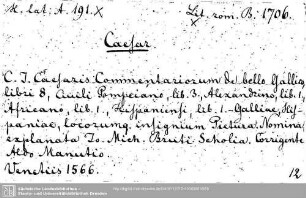 H. lat: A 191.X Lit. rom. B. 1706.
Caesar
C. J. Caesaris Commentariorum de bello Gallico
libri 8, Civili Pompeiano, lib. 3, Alexandrino, lib. 1,
Africano, lib. 1, Hispaniensi, lib. 1. Galliae, His-
paniae, locorumq. insignium Pictura. Nomina
explanata Jo. Mich. Bruti Scholia. Corrigente
Aldo Manutio.
Venetiis 1566. 12
Sächsische Landesbibliothek -
Staats- und Universitätsbibliothek Dresden